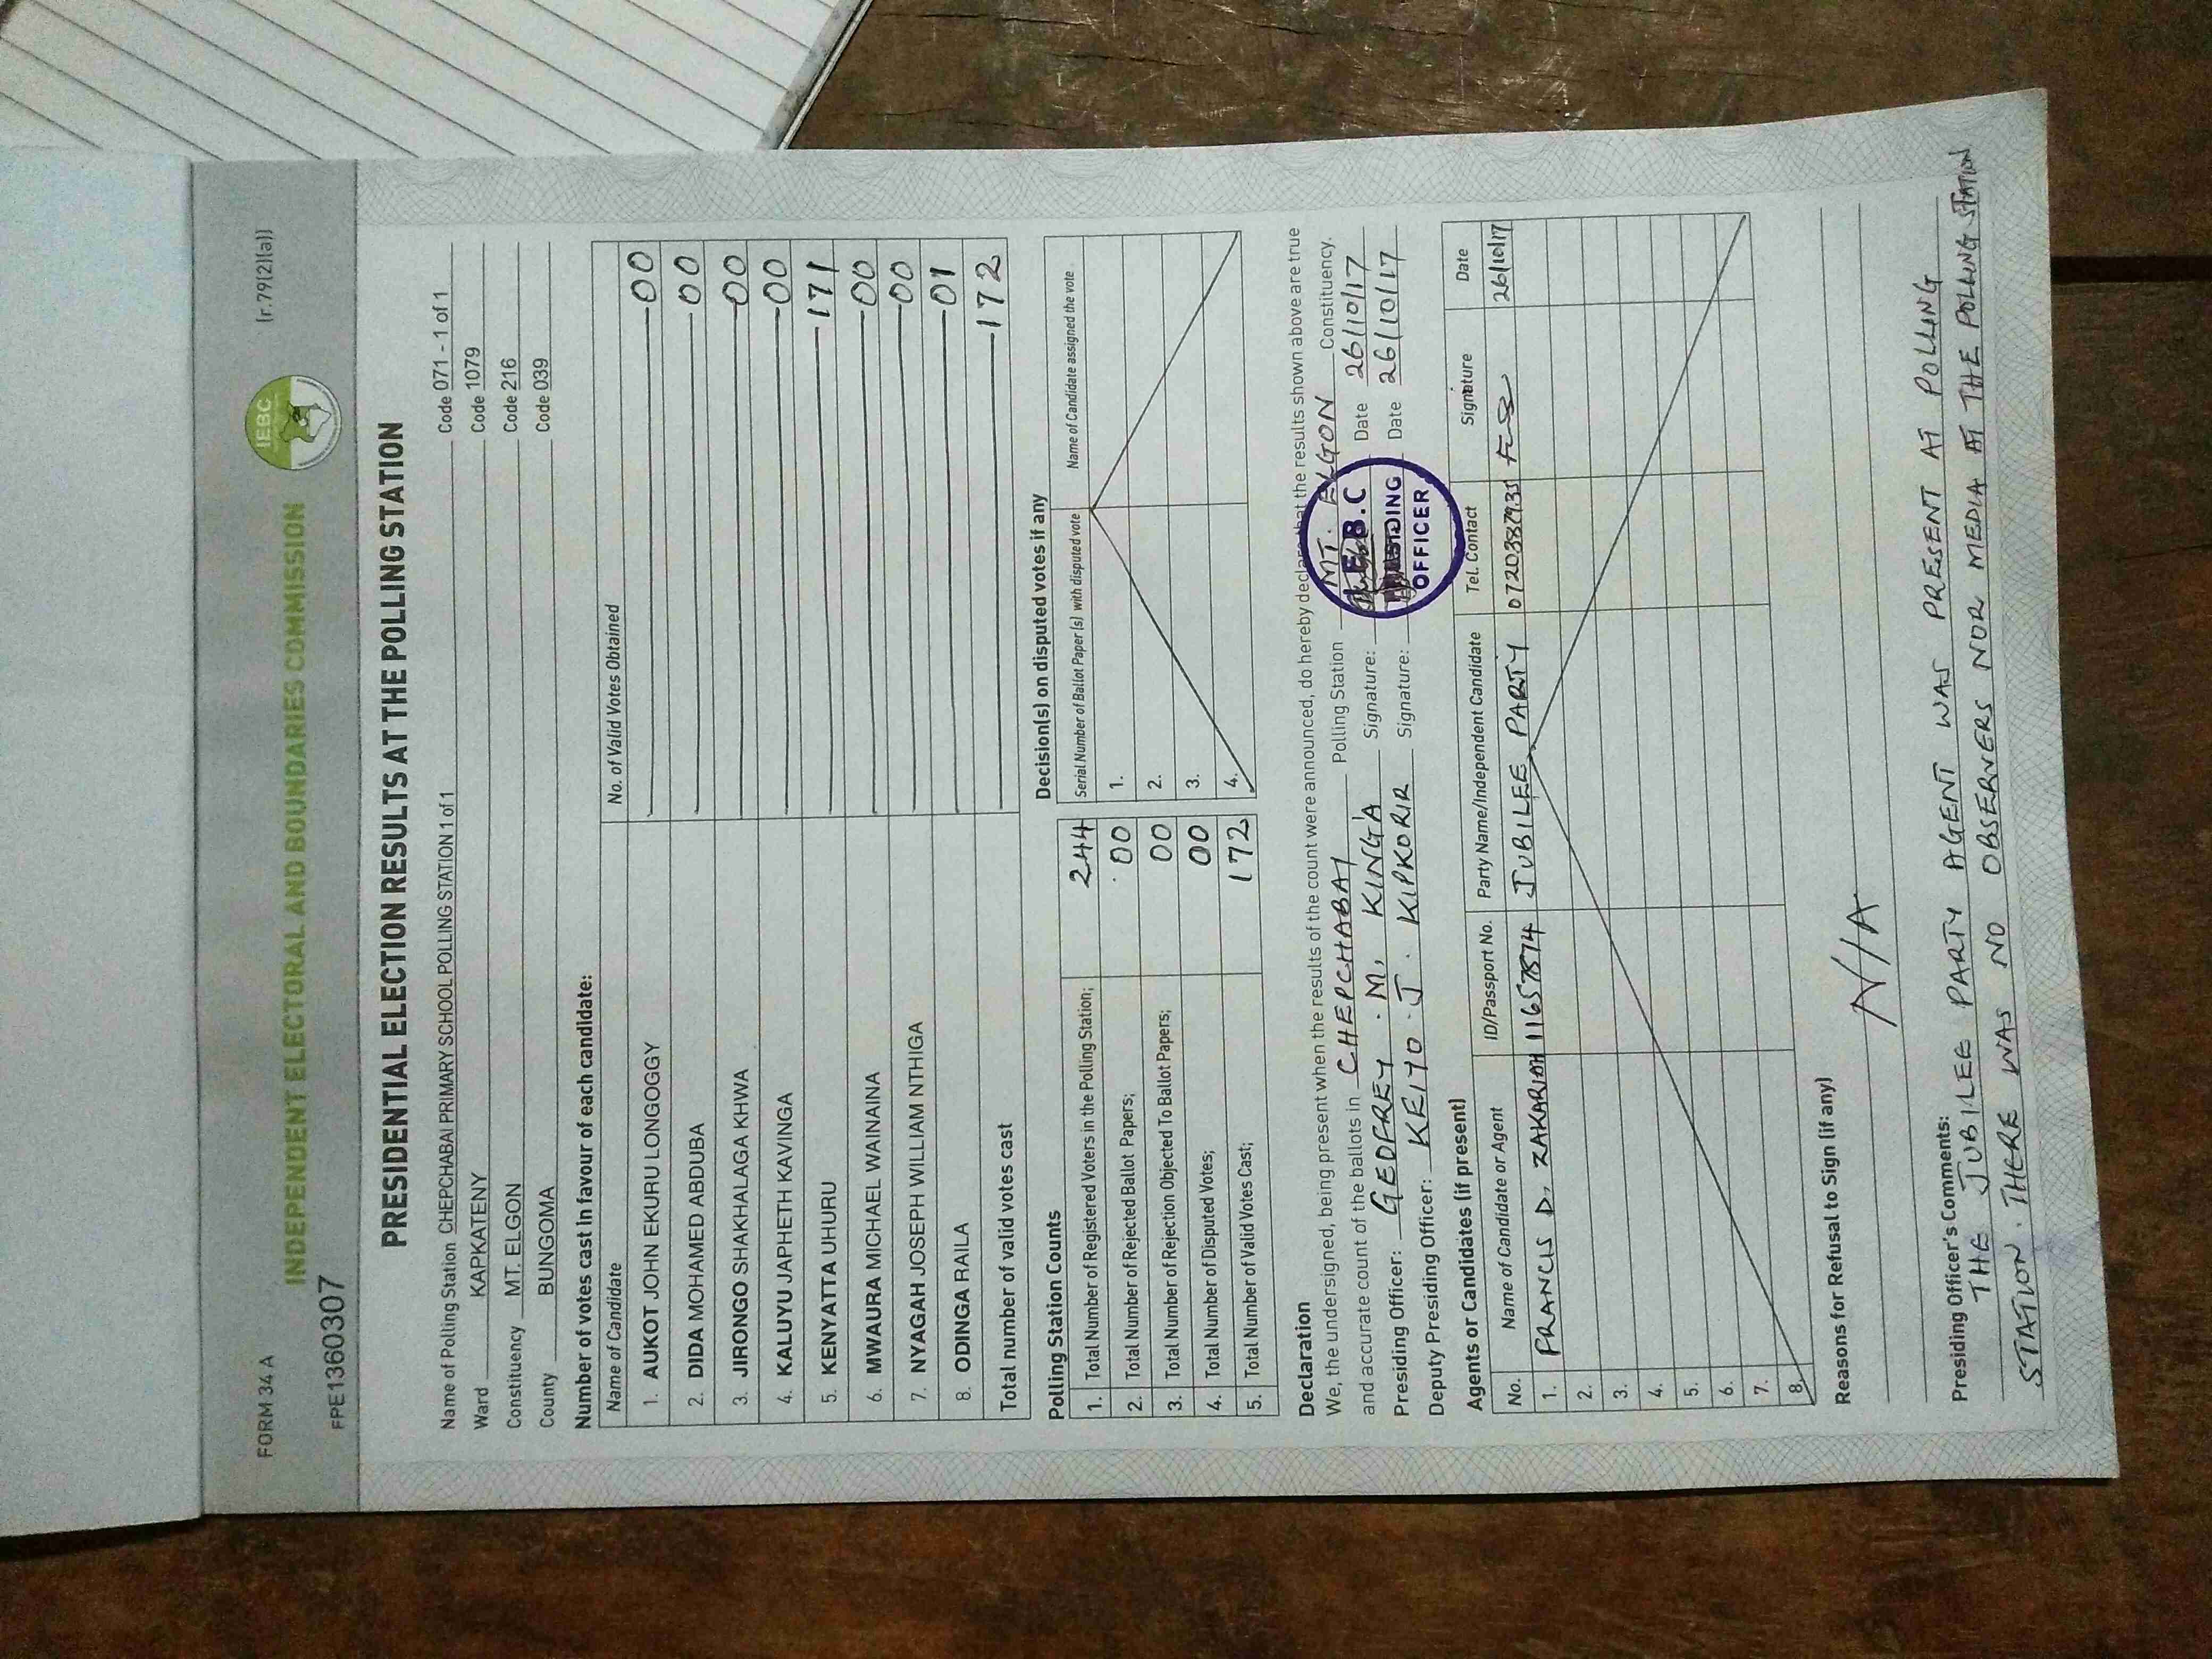 FORM 34 A
[r.79(2)(a)]
INDEPENDENT ELECTORAL AND BOUNDARIES COMMISSION
IEBC
FPE1360307
PRESIDENTIAL ELECTION RESULTS AT THE POLLING STATION
Name of Polling Station CHEPCHABAI PRIMARY SCHOOL POLLING STATION 1 of 1 Code 071 - 1 of 1
Ward KAPKATENY Code 1079
Constituency MT. ELGON Code 216
County BUNGOMA Code 039
Number of votes cast in favour of each candidate:
Name of Candidate No. of Valid Votes Obtained
1. AUKOT JOHN EKURU LONGOGGY 00
2. DIDA MOHAMED ABDUBA 00
3. JIRONGO SHAKHALAGA KHWA 00
4. KALUYU JAPHETH KAVINGA 00
5. KENYATTA UHURU 171
6. MWAURA MICHAEL WAINAINA 00
7. NYAGAH JOSEPH WILLIAM NTHIGA 00
8. ODINGA RAILA 01
Total number of valid votes cast 172
Polling Station Counts
1. Total Number of Registered Voters in the Polling Station; 244
2. Total Number of Rejected Ballot Papers; 00
3. Total Number of Rejection Objected To Ballot Papers; 00
4. Total Number of Disputed Votes; 00
5. Total Number of Valid Votes Cast; 172
Decision(s) on disputed votes if any
Serial Number of Ballot Paper (s) with disputed vote Name of Candidate assigned the vote
1.
2.
3.
4.
Declaration
We, the undersigned, being present when the results of the count were announced, do hereby declare that the results shown above are true
and accurate count of the ballots in CHEPCHABAI Polling Station MT. ELGON Constituency.
Presiding Officer: GEOFREY . M. KINGA Signature: Date 26/10/17
Deputy Presiding Officer: KEITO . J. KIPKORIR Signature: Date 26/10/17
I.E.B.C
PRESIDING
OFFICER
Agents or Candidates (if present)
No. Name of Candidate or Agent ID/Passport No. Party Name/Independent Candidate Tel. Contact Signature Date
1. FRANCIS D. ZAKARIAH JUBILEE PARTY 26/10/17
2.
3.
4.
5.
6.
7.
8.
Reasons for Refusal to Sign (if any)
N/A
Presiding Officer's Comments:
THE JUBILEE PARTY AGENT WAS PRESENT AT POLLING
STATION. THERE WAS NO OBSERVERS NOR MEDIA AT THE POLLING STATION